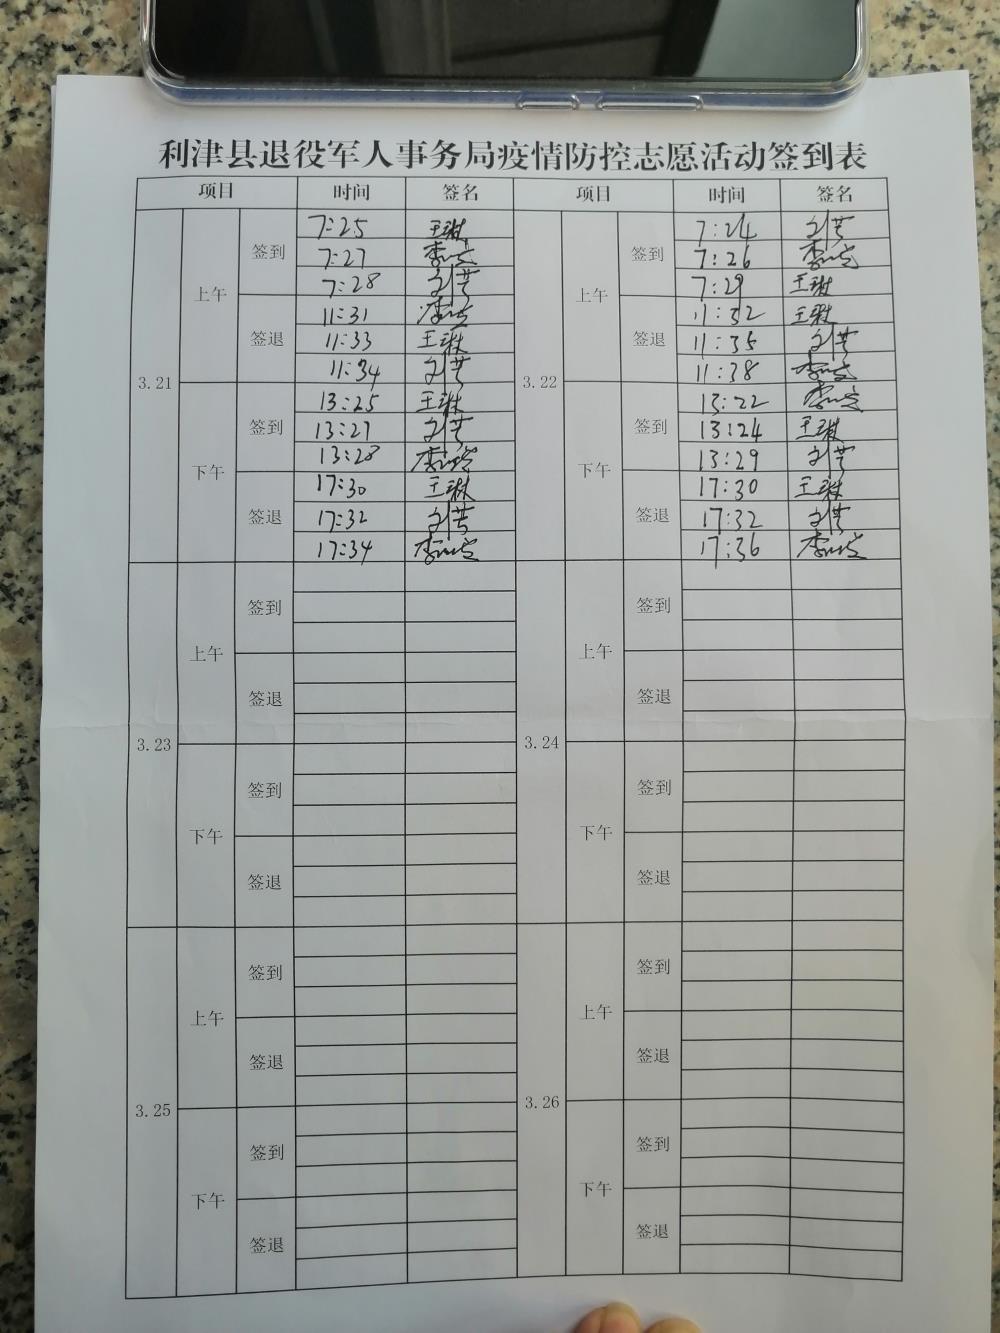 利津县退役军人事务局疫情防控志愿活动签到表
项目 时间 签名 项目 时间 签名
3.21
上午
签到
7:25 王琳
7:27
7:28
签退
11:31
11:33 王琳
11:34
下午
签到
13:25 王琳
13:27
13:28
签退
17:30 王琳
17:32
17:34
3.22
上午
签到
7:24
7:26
7:29 王琳
签退
11:32 王琳
11:35
11:38
下午
签到
13:22
13:24 王琳
13:29
签退
17:30 王琳
17:32
17:36
3.23
上午
签到
签退
下午
签到
签退
3.24
上午
签到
签退
下午
签到
签退
3.25
上午
签到
签退
下午
签到
签退
3.26
上午
签到
签退
下午
签到
签退